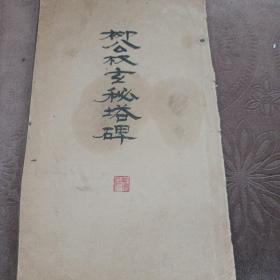 柳公权玄秘塔碑